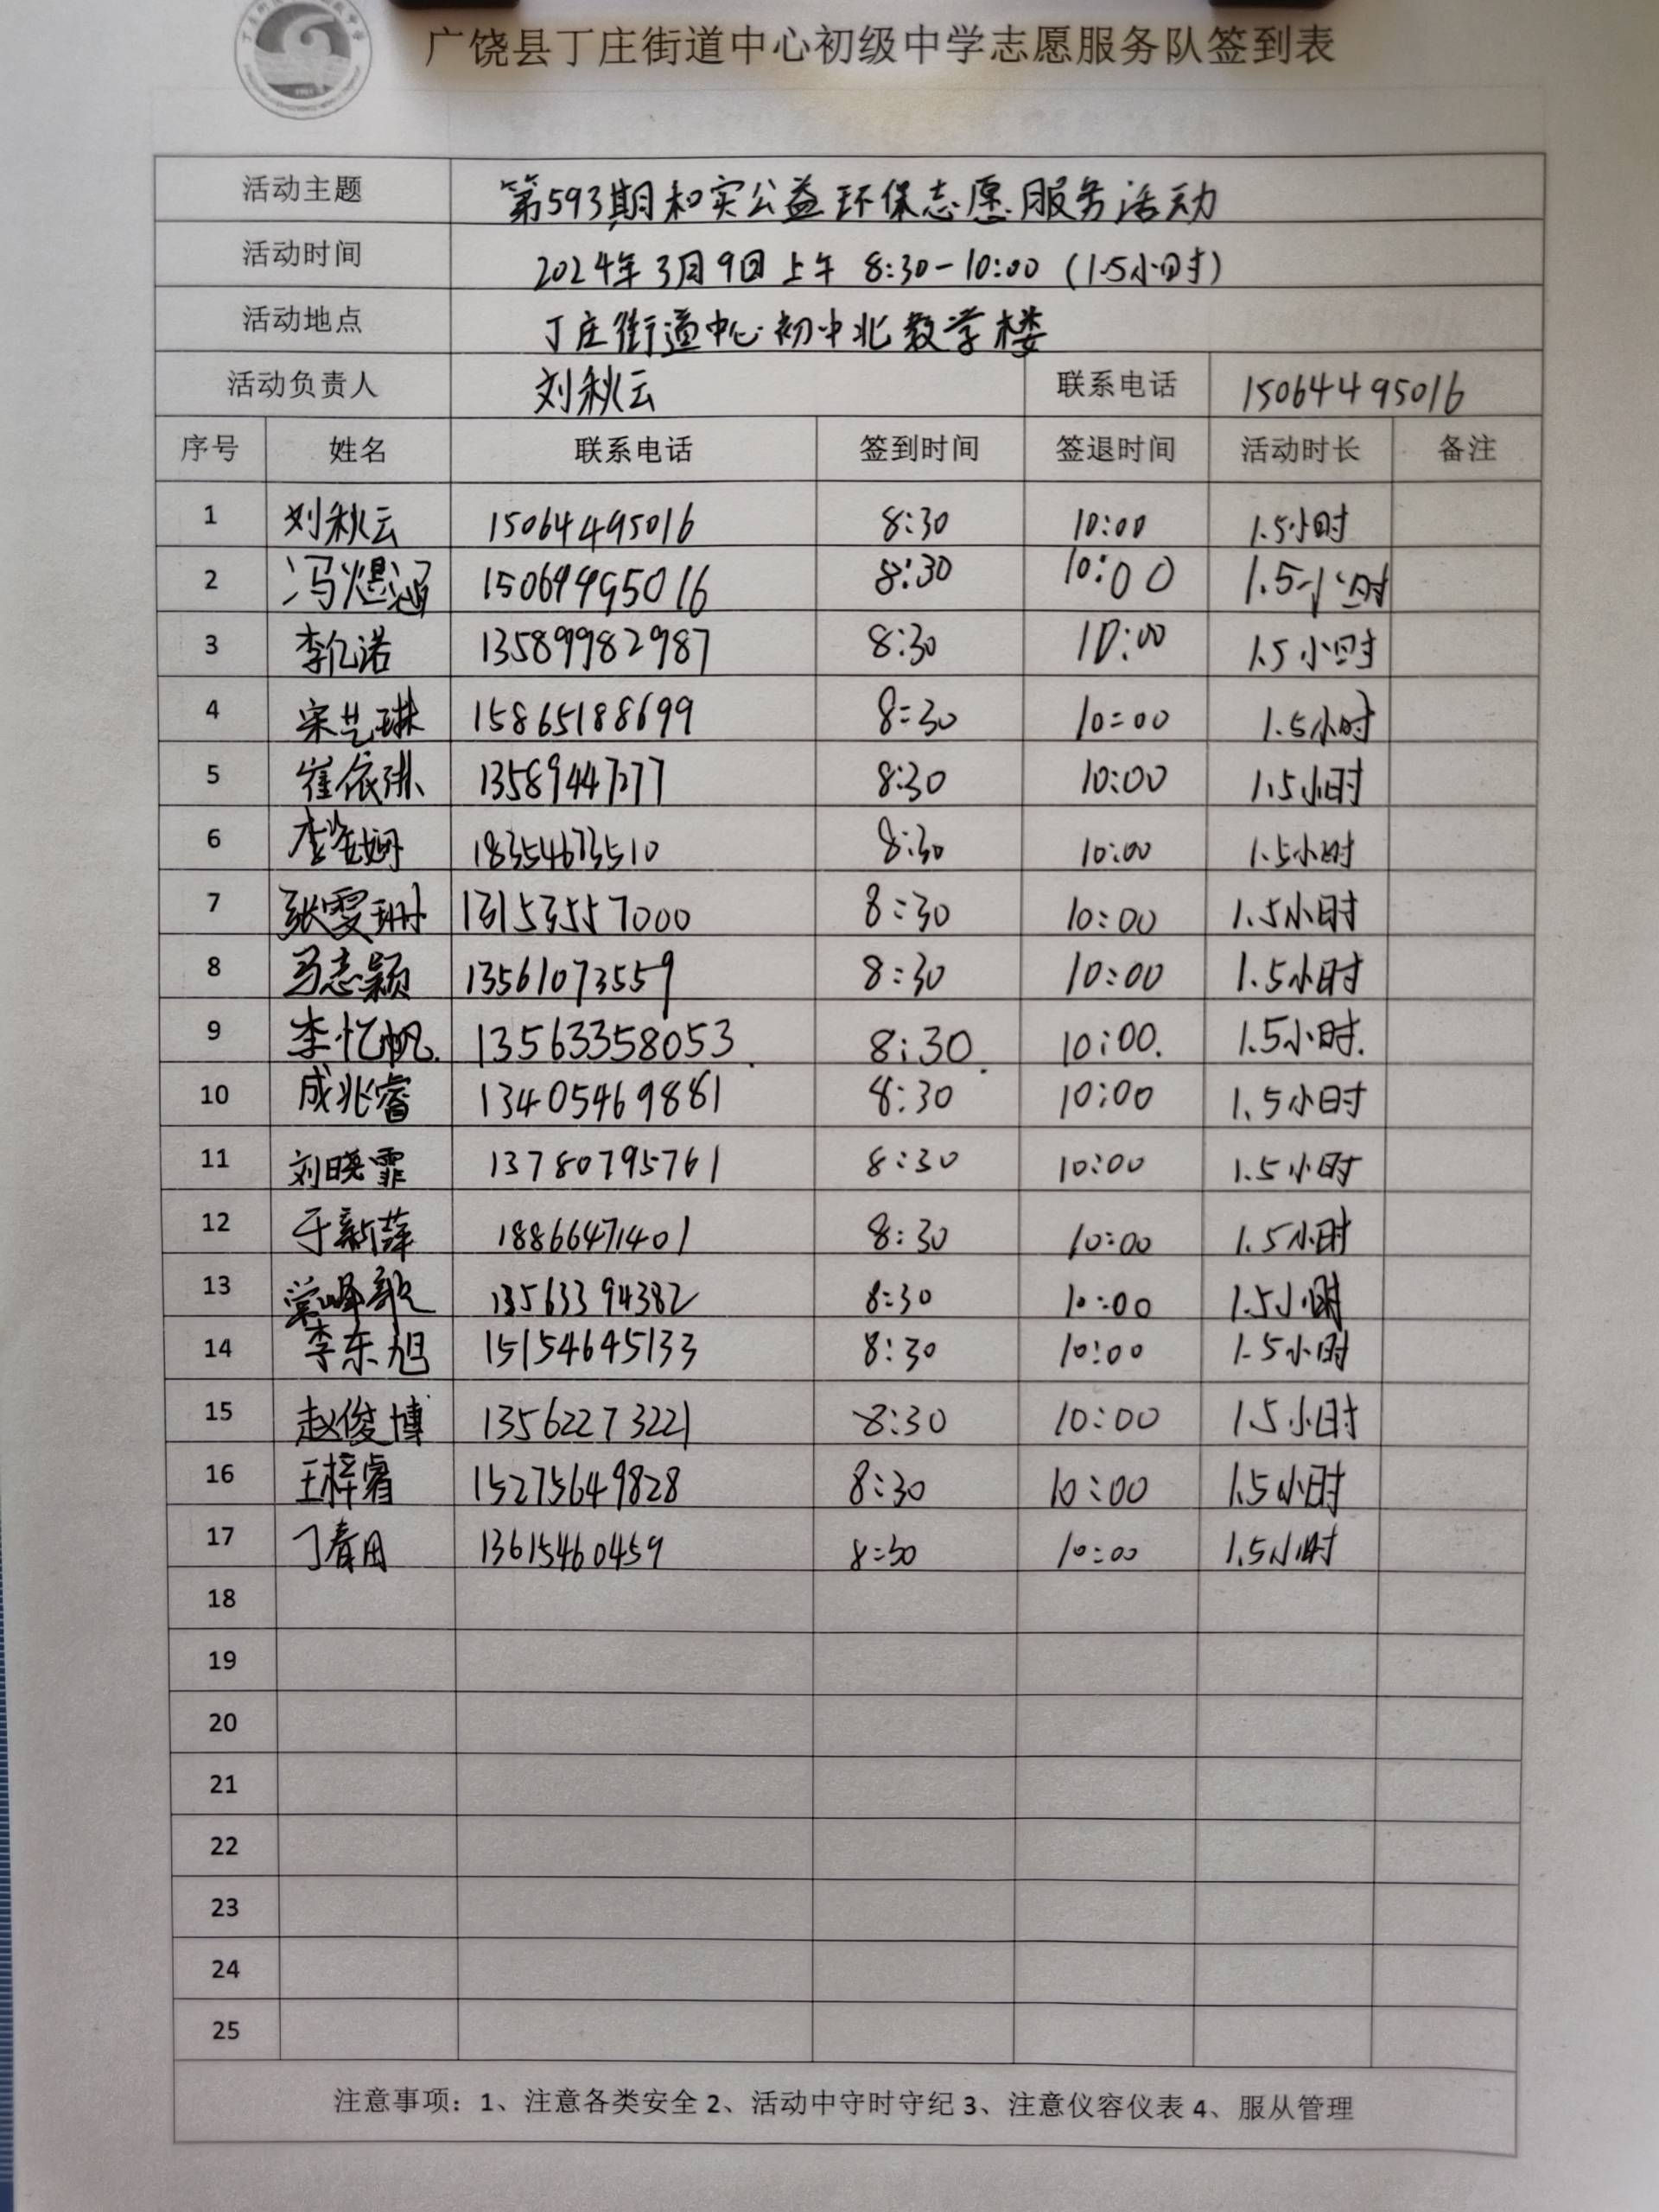 广饶县丁庄街道中心初级中学志愿服务队签到表
活动主题 第593期和实公益环保志愿服务活动
活动时间 2024年3月9日上午 8:30-10:00 (1.5小时)
活动地点 丁庄街道中心初中北教学楼
活动负责人 刘秋云 联系电话 15064495016
序号 姓名 联系电话 签到时间 签退时间 活动时长 备注
1 刘秋云 15064495016 8:30 10:00 1.5小时
2 冯煜涵 15064495016 8:30 10:00 1.5小时
3 李亿诺 13589982987 8:30 10:00 1.5小时
4 宋艺琳 15865188699 8:30 10:00 1.5小时
5 崔依琳 13589447277 8:30 10:00 1.5小时
6 18354673510 8:30 10:00 1.5小时
7 张雯珊 13153557000 8:30 10:00 1.5小时
8 马志颖 13561073559 8:30 10:00 1.5小时
9 李忆帆. 13563358053. 8:30. 10:00. 1.5小时.
10 成兆睿 13405469881 8:30 10:00 1.5小时
11 刘晓霏 13780795761 8:30 10:00 1.5小时
12 于新萍 18866471401 8:30 10:00 1.5小时
13 13563394382 8:30 10:00 1.5小时
14 李东旭 15154645133 8:30 10:00 1.5小时
15 赵俊博 13562273221 8:30 10:00 1.5小时
16 王梓睿 15275649828 8:30 10:00 1.5小时
17 丁春田 13615460459 8:30 10:00 1.5小时
18
19
20
21
22
23
24
25
注意事项：1、注意各类安全 2、活动中守时守纪 3、注意仪容仪表 4、服从管理